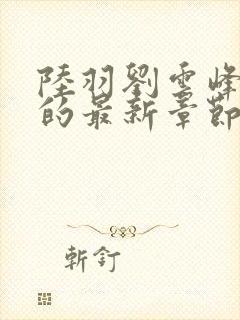 陸羽劉雲峰
的最新章節
斬釘